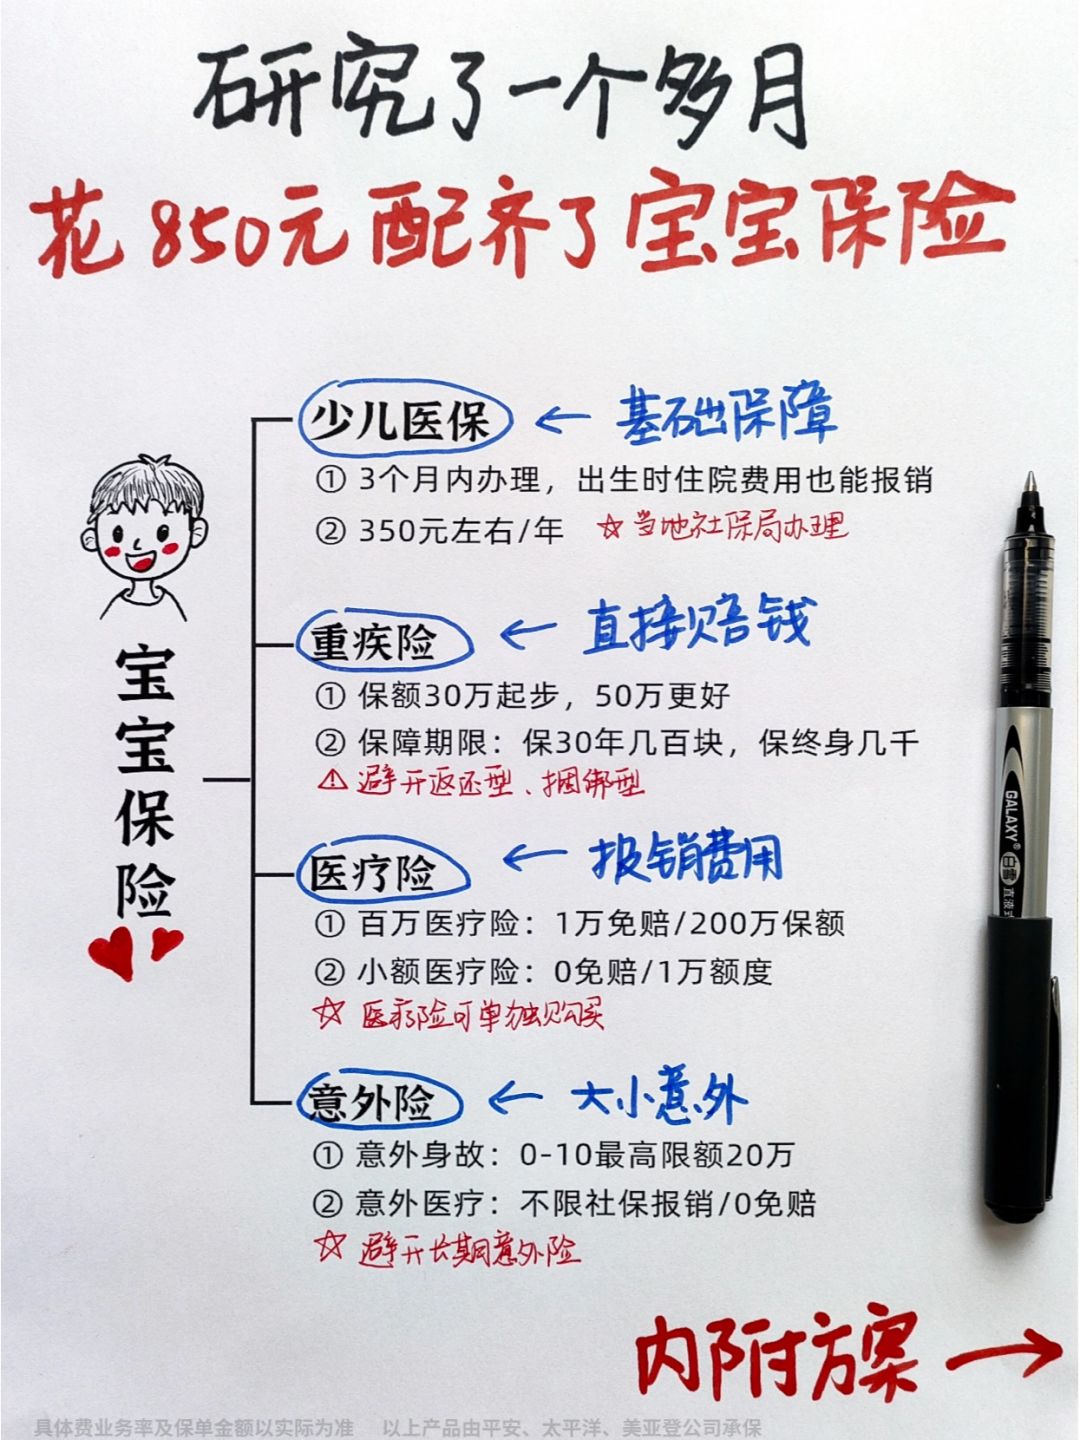 研究了一个多月
花850元配齐了宝宝保险
宝宝保险
少儿医保 ← 基础保障
① 3个月内办理，出生时住院费用也能报销
② 350元左右/年 ☆当地社保局办理
重疾险 ← 直接赔钱
① 保额30万起步，50万更好
② 保障期限：保30年几百块，保终身几千
⚠ 避开返还型、捆绑型
医疗险 ← 报销费用
① 百万医疗险：1万免赔/200万保额
② 小额医疗险：0免赔/1万额度
☆ 医疗险可单独购买
意外险 ← 大小意外
① 意外身故：0-10最高限额20万
② 意外医疗：不限社保报销/0免赔
☆ 避开长期意外险
内附方案 →
GALAXY® 白雪 直液式
具体费业务率及保单金额以实际为准 以上产品由平安、太平洋、美亚登公司承保